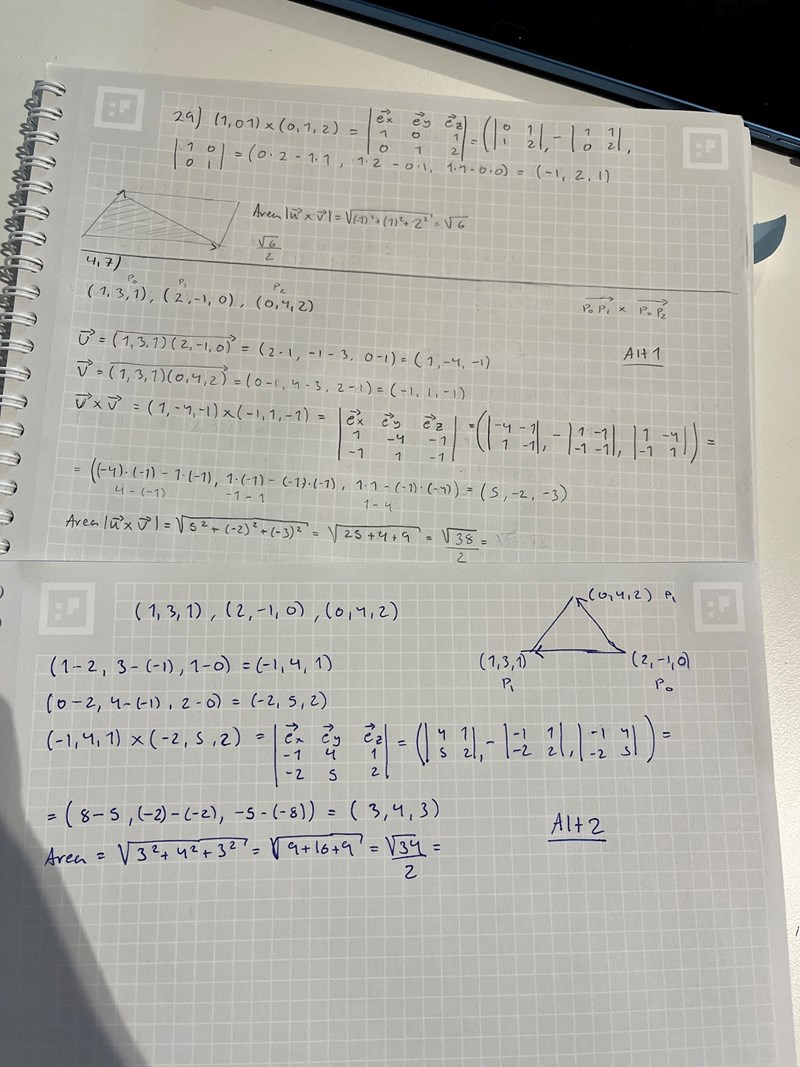 29) (1,01) × (0,1,2) = |e⃗x e⃗y e⃗z; 1 0 1; 0 1 2| = (|0 1; 1 2|, -|1 1; 0 2|,
|1 0; 0 1| = (0·2 - 1·1, 1·2 - 0·1, 1·1 - 0·0) = (-1, 2, 1)
Area |u⃗ × v⃗| = √((-1)² + (1)² + 2²) = √6
√6/2
4,7)
P₀ P₁ P₂
(1,3,1), (2,-1,0), (0,4,2)
P₀P₁ × P₀P₂
u⃗ = (1,3,1)(2,-1,0) = (2-1, -1-3, 0-1) = (1,-4,-1)
Alt 1
v⃗ = (1,3,1)(0,4,2) = (0-1, 4-3, 2-1) = (-1, 1, -1)
u⃗×v⃗ = (1,-4,-1)×(-1,1,-1) = |e⃗x e⃗y e⃗z; 1 -4 -1; -1 1 -1| = (|-4 -1; 1 -1|, -|1 -1; -1 -1|, |1 -4; -1 1|) =
= ((-4)·(-1) - 1·(-1), 1·(-1) - (-1)·(-1), 1·1 - (-1)·(-4)) = (5, -2, -3)
4-(-1) -1-1 1-4
Area |u⃗ × v⃗| = √(5² + (-2)² + (-3)²) = √(25+4+9) = √38/2 =
(1,3,1), (2,-1,0), (0,4,2)
(0,4,2) P₁
(1-2, 3-(-1), 1-0) = (-1,4,1)
(1,3,1) (2,-1,0)
P₁ P₀
(0-2, 4-(-1), 2-0) = (-2,5,2)
(-1,4,1) × (-2,5,2) = |e⃗x e⃗y e⃗z; -1 4 1; -2 5 2| = (|4 1; 5 2|, -|-1 1; -2 2|, |-1 4; -2 5|) =
= (8-5, (-2)-(-2), -5-(-8)) = (3,4,3)
Alt 2
Area = √(3²+4²+3²) = √(9+16+9) = √34/2 =